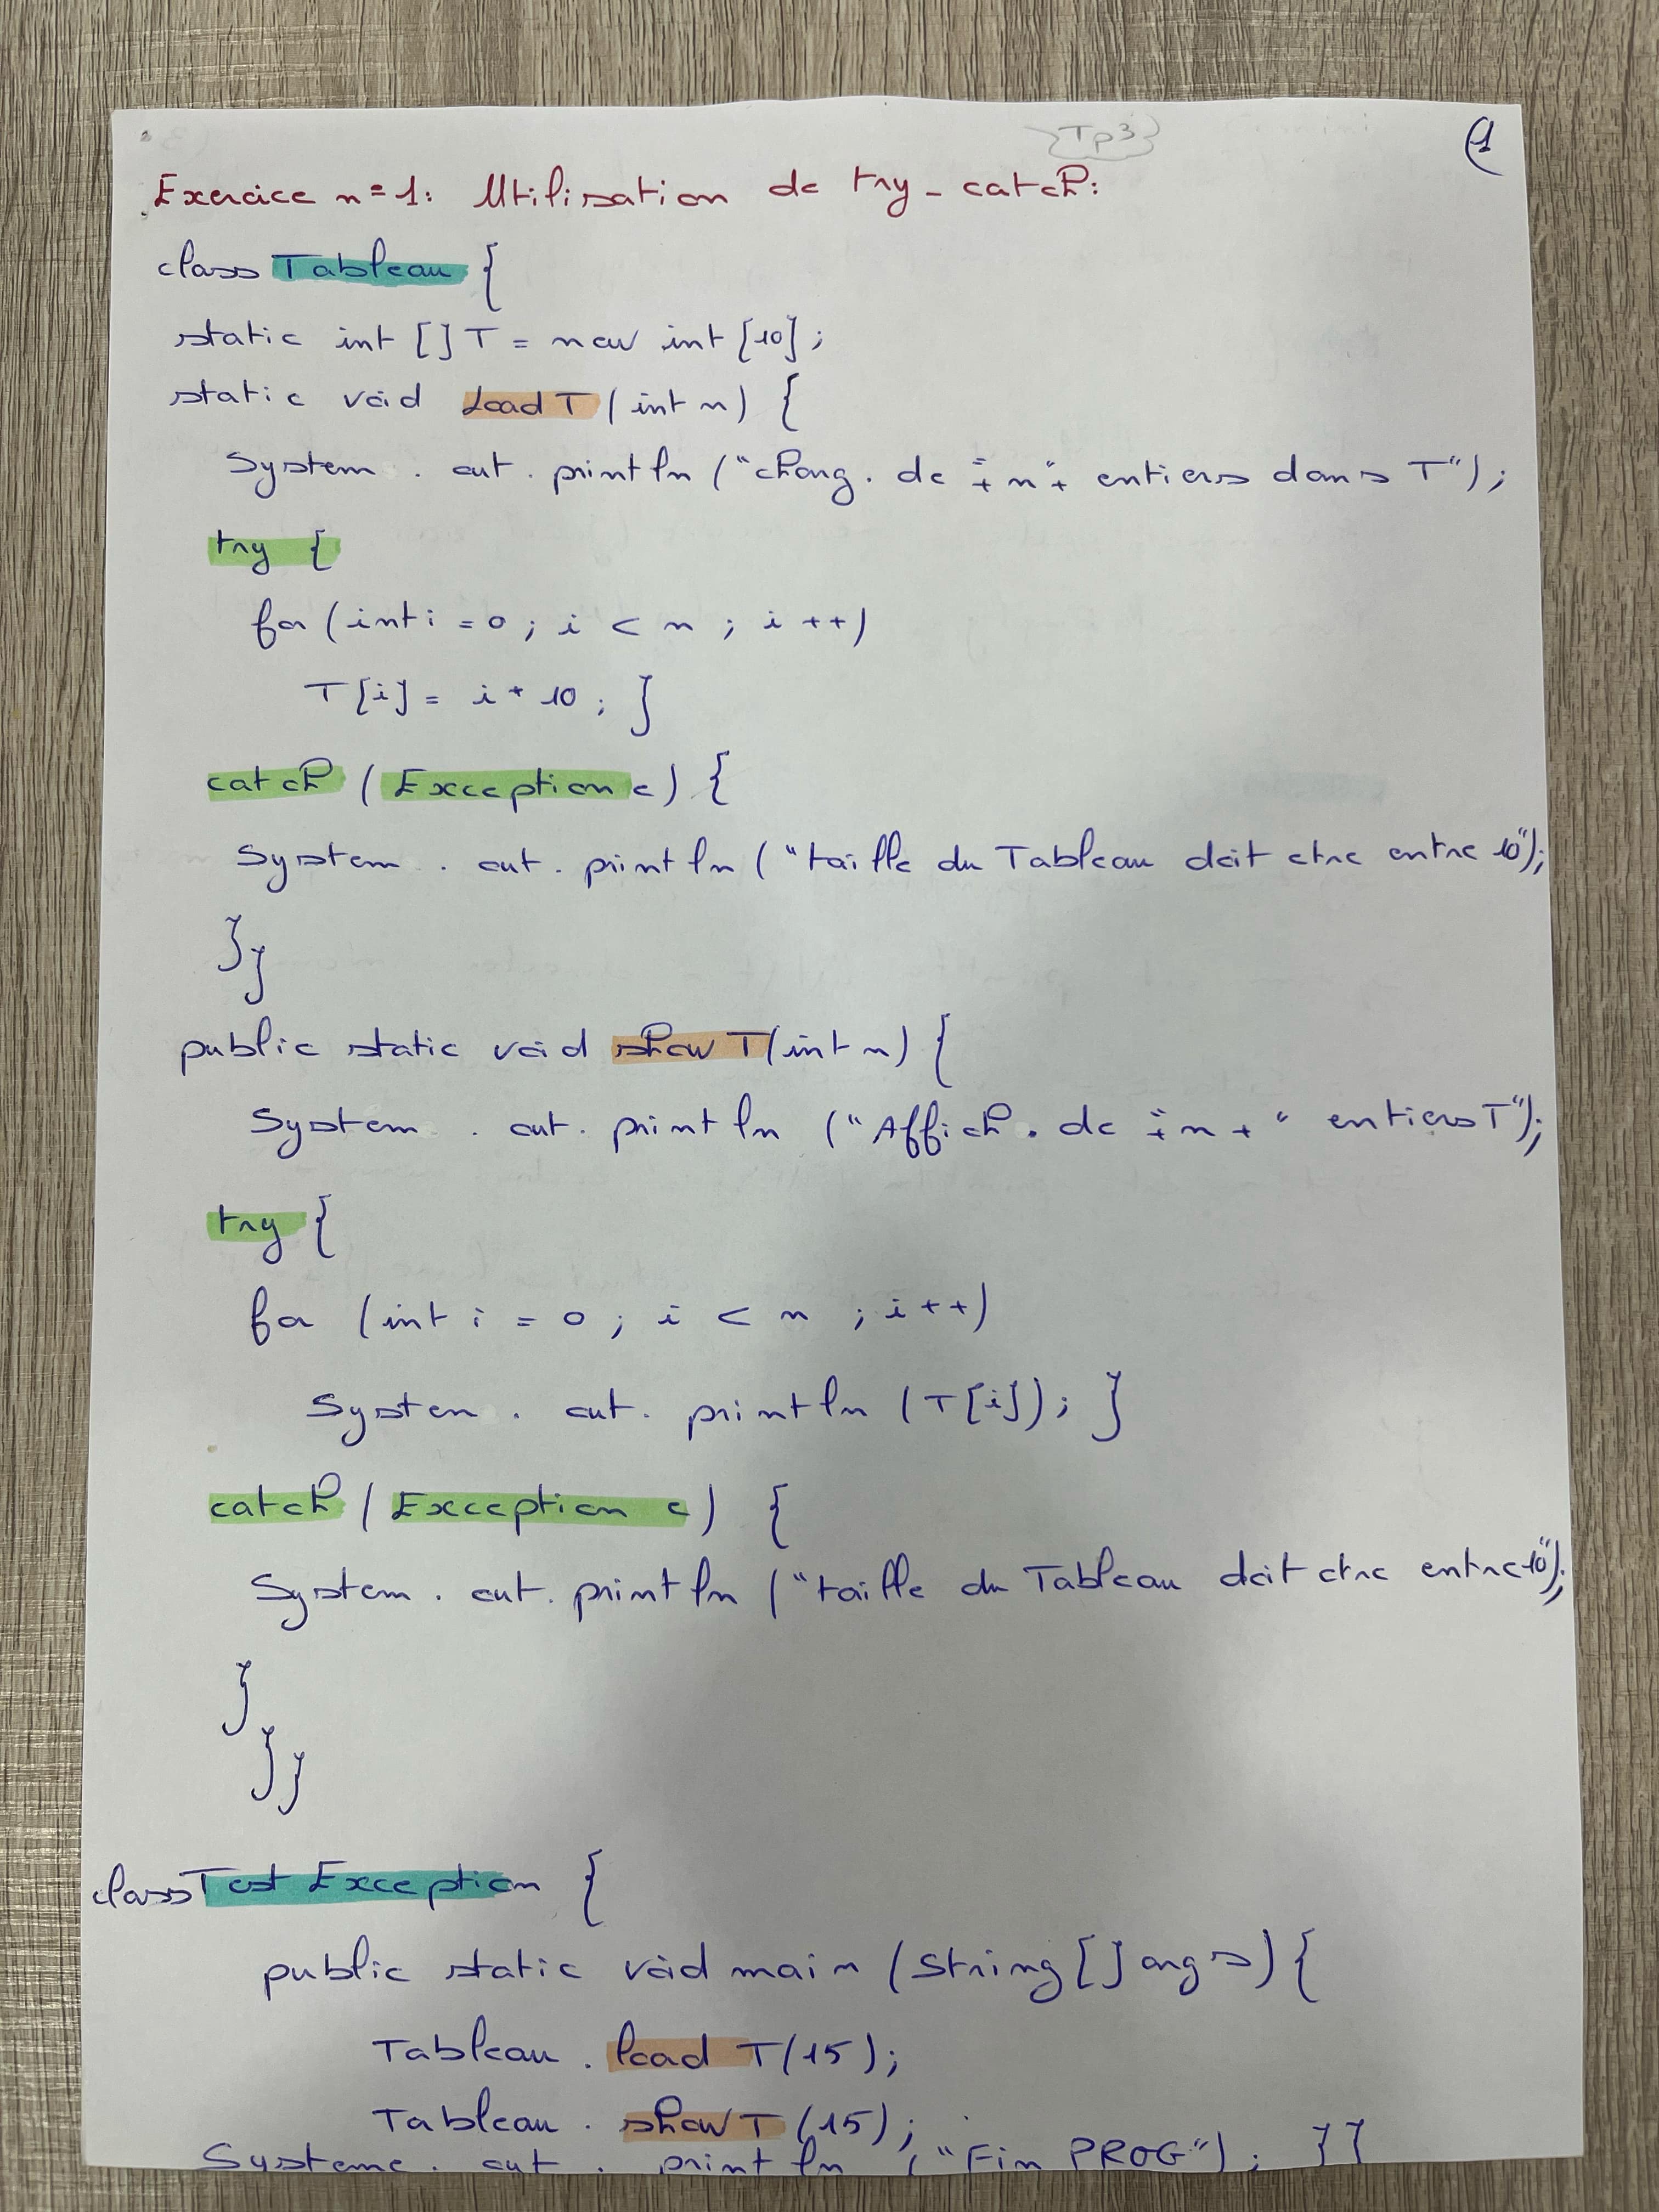 Tp3
1
Exercice n=1: Utilisation de try-catch:
class Tableau {
static int [] T = new int [10];
static void Load T (int n) {
System . out . println ("charg. de "+ n "+ entiers dans T");
try {
for (int i = 0 ; i < n ; i ++)
T[i] = i * 10 ; }
catch (Exception e) {
System . out . println ("taille du Tableau doit etre entre 10");
}}
public static void show T(int n) {
System . out . println ("Affich . de "+ n + " entiers T");
try {
for (int i = 0 ; i < n ; i ++)
System . out . println (T[i]) ; }
catch (Exception e) {
System . out . println ("taille du Tableau doit etre entre 10");
}
}}
class Test Exception {
public static void main (String [] args) {
Tableau . load T(15);
Tableau . show T (15);
Systeme . out . println ("Fin PROG") ; }}